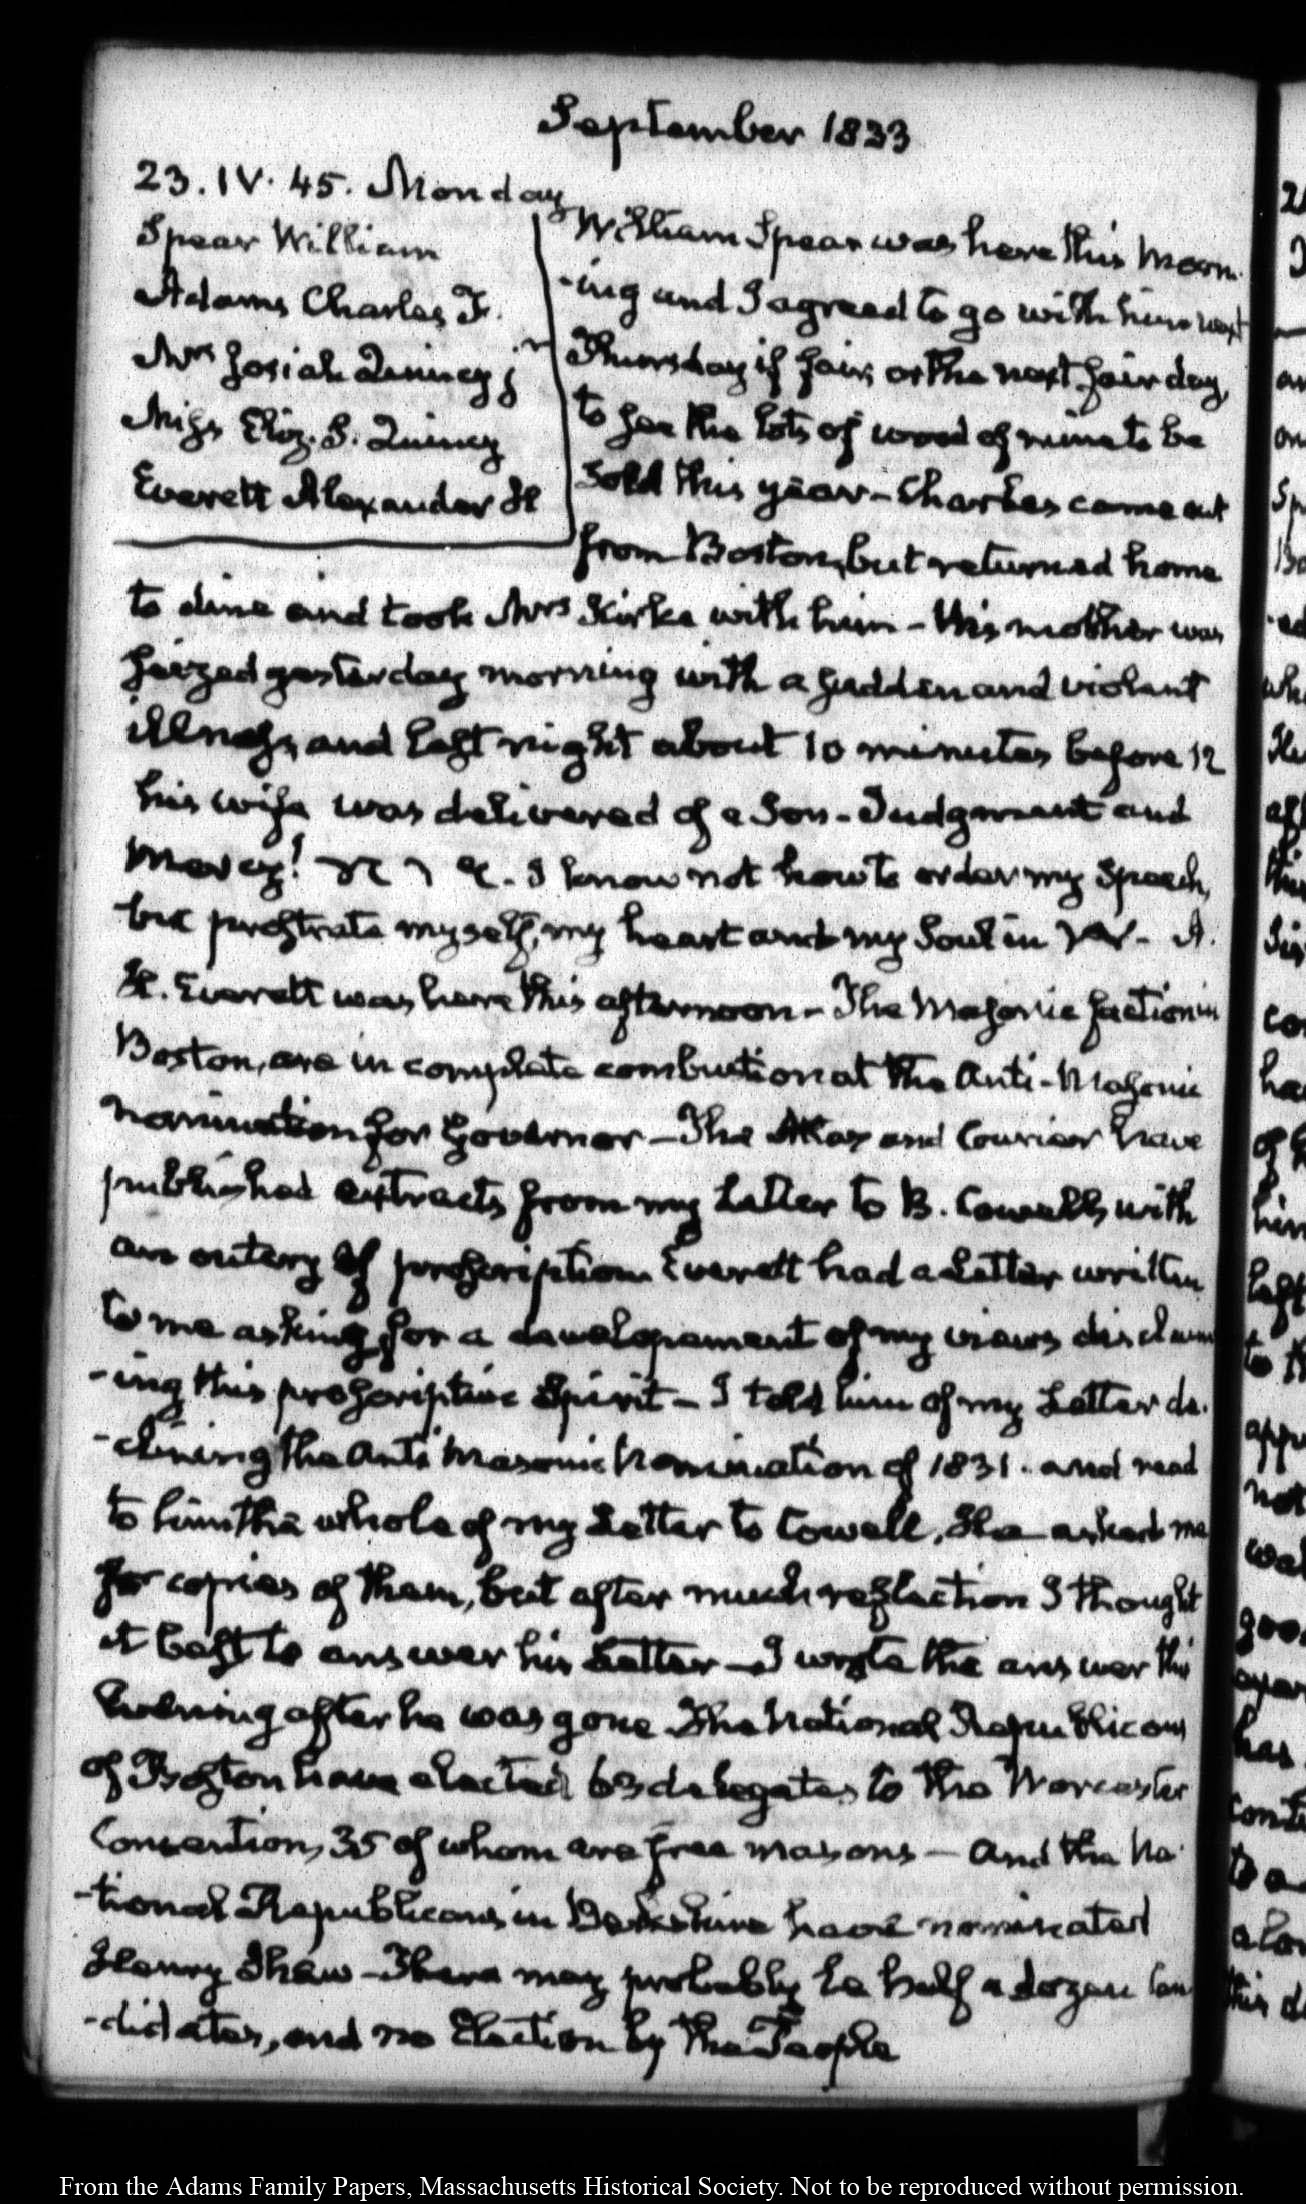 September 1833
23. IV. 45. Monday
Spear William
Adams Charles F.
Mrs Josiah Quincy jr
Miss Eliz. S. Quincy
Everett Alexander H
William Spear was here this Morn-
-ing and I agreed to go with him next
Thursday if fair, or the next fair day,
to see the lots of wood of mine to be
sold this year – Charles came out
from Boston, but returned home
to dine and took Mrs Kirke with him – his mother was
seized yesterday morning with a sudden and violent
illness, and last night about 10 minutes before 12
his wife was delivered of a Son – Judgment and
Mercy! I know not how to order my Speech,
but prostrate myself, my heart and my Soul in A.
H. Everett was here this afternoon – The Masonic faction in
Boston, are in complete combustion at the Anti-Masonic
nomination for Governor – The Atlas and Courier have
published extracts from my Letter to B. Cowell, with
an outcry of proscription. Everett had a Letter written
to me asking for a developement of my views disclaim
-ing this proscriptive Spirit – I told him of my Letter de-
-clining the Anti Masonic Nomination of 1831. and read
to him the whole of my Letter to Cowell. He asked me
for copies of them, but after much reflection I thought
it best to answer his Letter – I wrote the answer this
Evening after he was gone The National Republicans
of Boston have elected 63 delegates to the Worcester
Convention, 35 of whom are free masons – And the Na-
-tional Republicans in Berkshire have nominated
Henry Shaw – There may probably be half a dozen Can
-didates, and no Election by the People
From the Adams Family Papers, Massachusetts Historical Society. Not to be reproduced without permission.